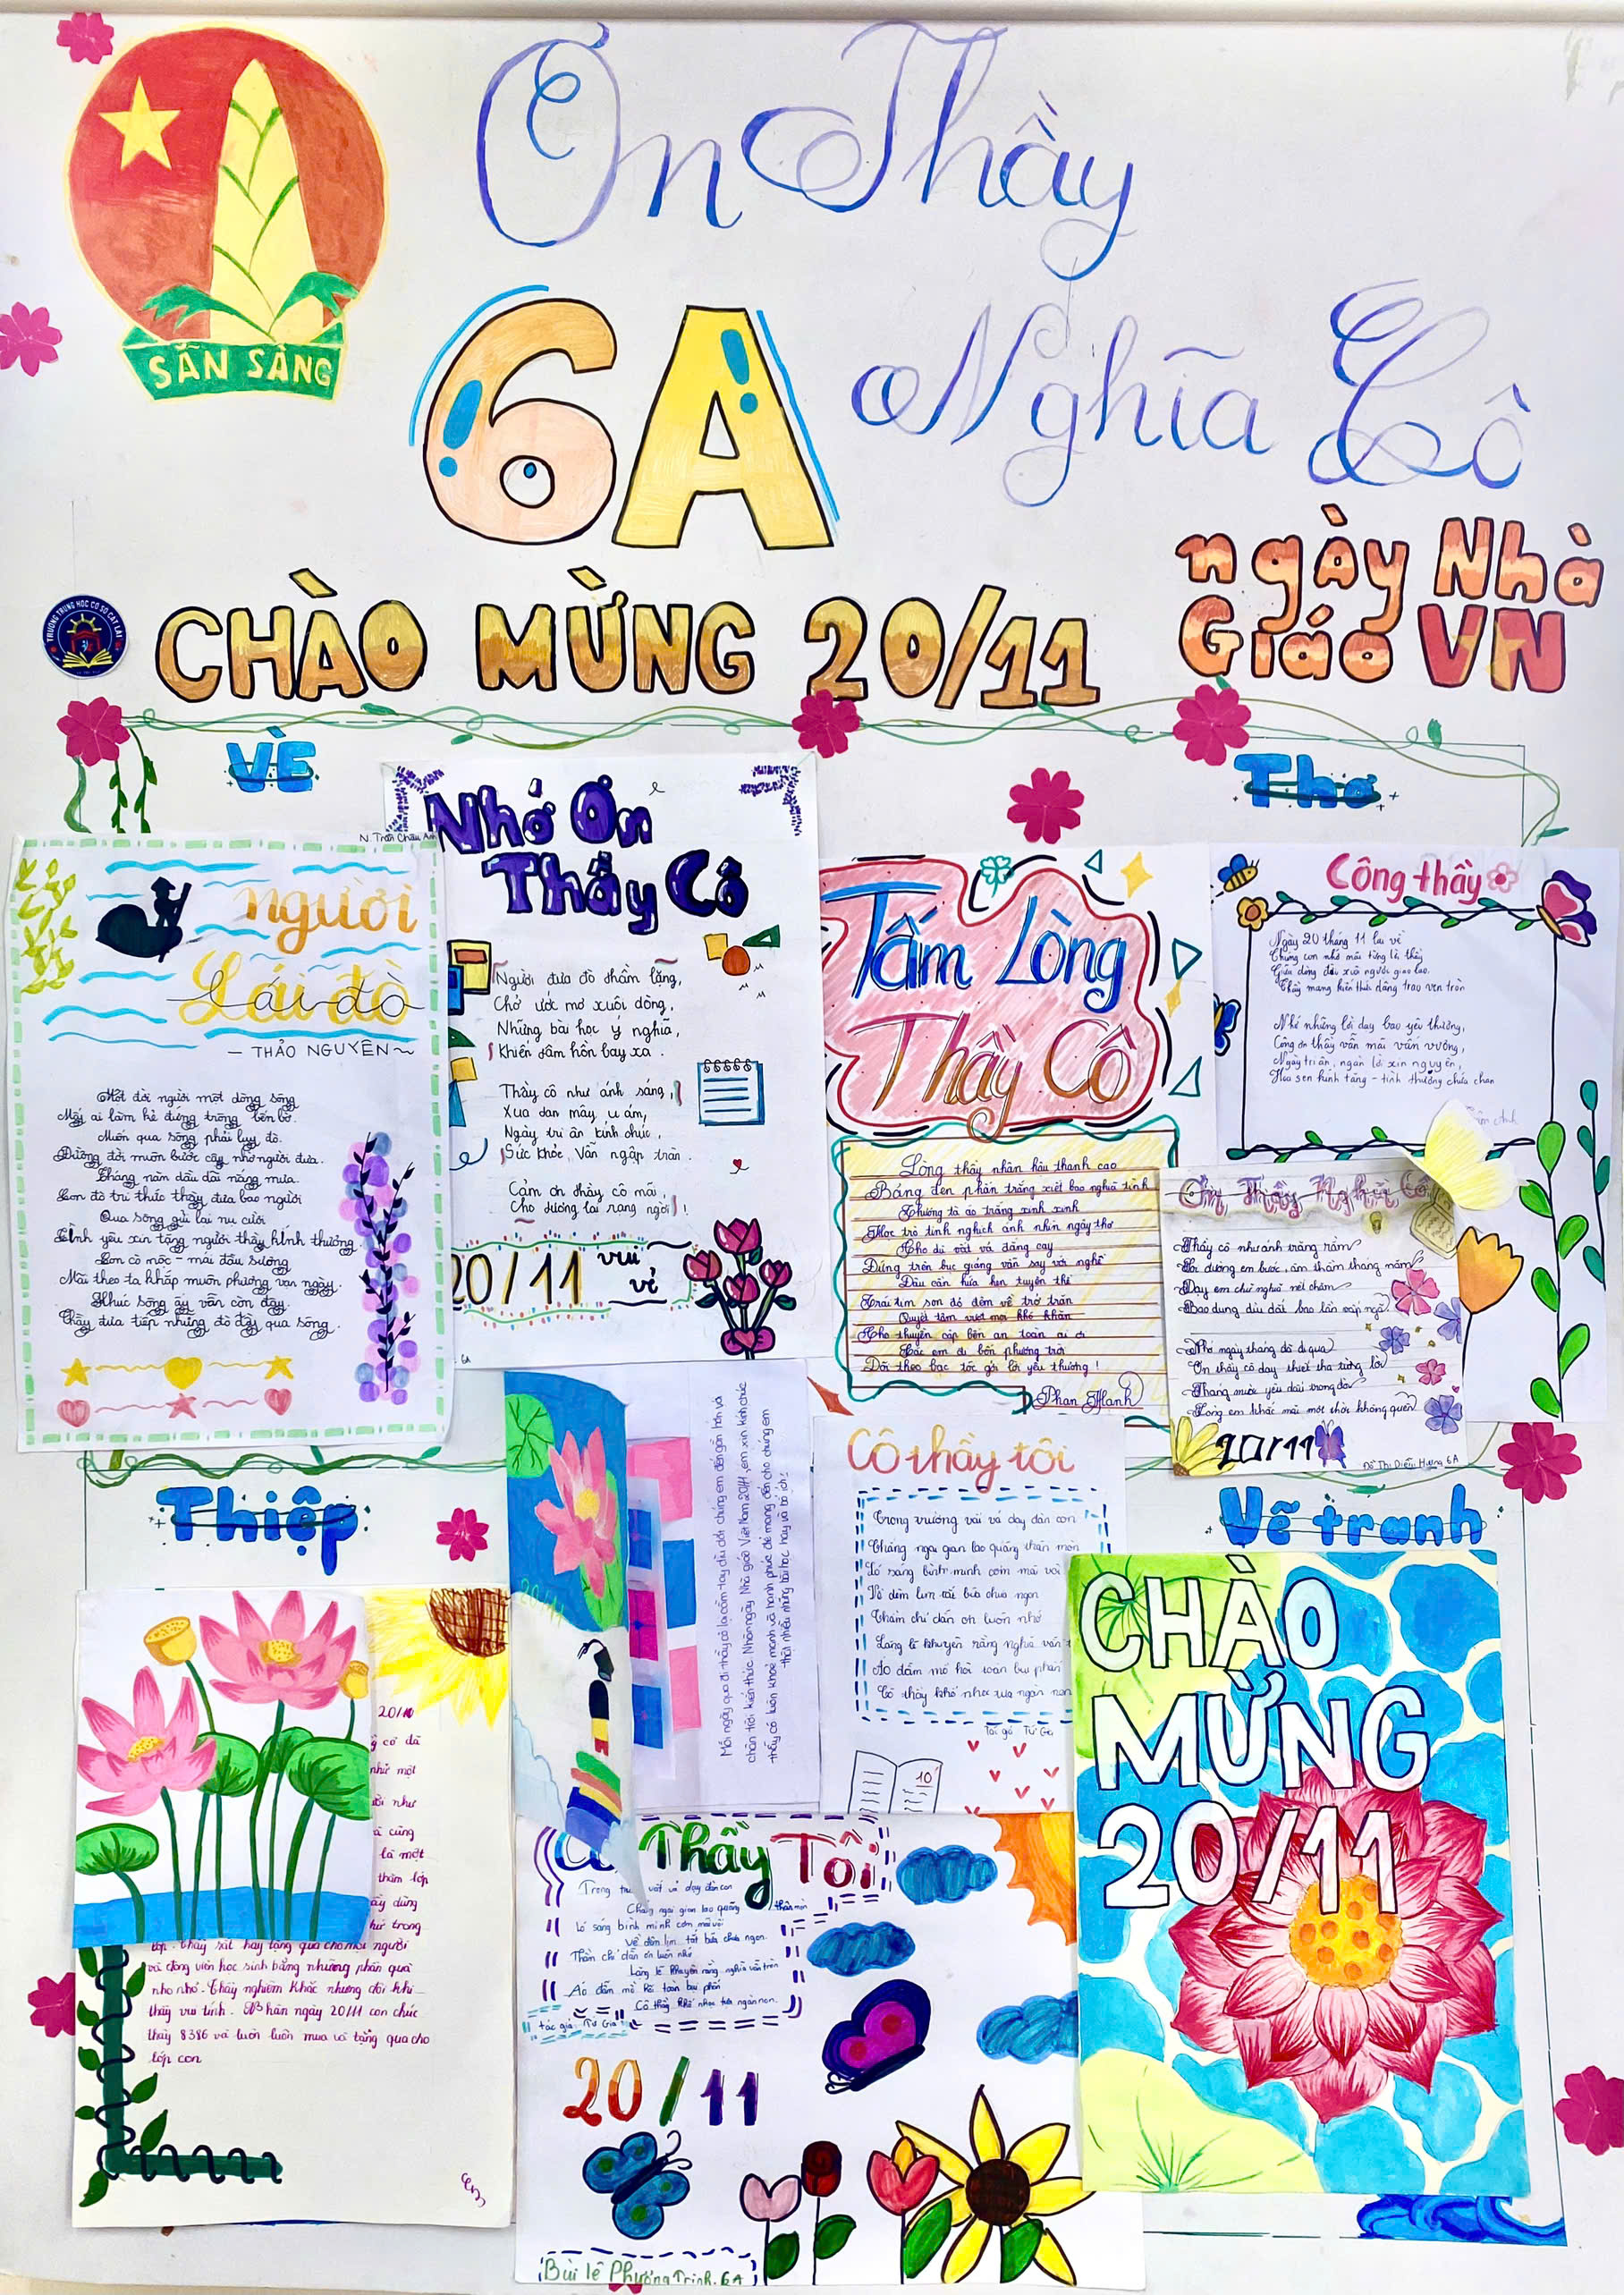 Ơn Thầy
6A Nghĩa Cô
SẴN SÀNG
CHÀO MỪNG 20/11
ngày Nhà
Giáo VN
TRƯỜNG TRUNG HỌC CƠ SỞ CÁT LÁI
VÈ
Thơ
N Trần Châu Anh
người
Lái đò
— THẢO NGUYÊN~
Một đời người một dòng sông
Mấy ai làm kẻ đứng trông bến bờ.
Muốn qua sông phải lụy đò.
Đường đời muôn bước cậy nhờ người đưa.
Tháng năm dầu dãi nắng mưa.
Con đò tri thức thầy đưa bao người
Qua sông gửi lại nụ cười
Tình yêu xin tặng người thầy kính thương.
Con cò mốc - mái đầu sương
Mãi theo ta khắp muôn phương vạn ngày.
Khúc sông ấy vẫn còn đây
Thầy đưa tiếp những đò đầy qua sông.
Nhớ Ơn
Thầy Cô
Người đưa đò thầm lặng,
Chở ước mơ xuôi dòng,
Những bài học ý nghĩa,
Khiến tâm hồn bay xa.
Thầy cô như ánh sáng,
Xua tan mây u ám,
Ngày tri ân kính chúc,
Sức khỏe, vẫn ngập tràn.
Cảm ơn thầy cô mãi,
Cho tương lai rạng ngời!
20/11 vui vẻ
6A
Tấm Lòng
Thầy Cô
Lòng thầy nhân hậu thanh cao
Bảng đen phấn trắng xiết bao nghĩa tình
Thướng tà áo trắng xinh xinh
Học trò tinh nghịch ánh nhìn ngây thơ
Cho dù vất vả đắng cay
Đứng trên bục giảng vẫn say với nghề
Dẫu cần hứa hẹn tuyên thề
Trái tim son đỏ đêm về trở trăn
Quyết tâm vượt mọi khó khăn
Cho thuyền cập bến an toàn ai ơi
Các em đi bốn phương trời
Dõi theo bạc tóc gửi lời yêu thương!
Phan Hạnh
Công thầy
Ngày 20 tháng 11 lại về
Chúng con nhớ mãi từng lời thầy
Giữa dòng đời xuôi ngược gian lao.
Thầy mang kiến thức dâng trao vẹn tròn
Nhớ những lời dạy bao yêu thương,
Công ơn thầy vẫn mãi vấn vương,
Ngày tri ân, ngàn lời xin nguyện,
Hoa sen kính tặng - tình thương chứa chan
Ơn Thầy Nghĩa Cô
Thầy cô như ánh trăng rằm
Soi đường em bước, âm thầm tháng năm
Dạy em chữ nghĩa nét chăm
Bao dung dìu dắt bao lần vấp ngã
Nhớ ngày tháng đó đi qua
Ơn thầy cô dạy thiết tha từng lời
Tháng mười yêu dấu trong đời
Lòng em khắc mãi một thời không quên
20/11
Đỗ Thị Diệu Hương 6A
Thiệp
Vẽ tranh
20/11
Mỗi ngày qua đi thầy cô lại cầm tay dìu dắt chúng em đến gần hơn và
chân trời kiến thức. Nhân ngày Nhà giáo Việt Nam 20/11, em xin kính chúc
thầy cô luôn khỏe mạnh và hạnh phúc để mang đến cho chúng em
thật nhiều những bài học hay và bổ ích!
Cô thầy tôi
Trong trường vất vả dạy đàn con
Chẳng ngại gian lao quãng thân mòn
Ló sáng bình minh cơm mãi vội
Về đêm lịm tắt bữa chưa ngon
Thâm chí dẫn ơn luôn nhớ
Lẳng lẽ khuyên rằng nghĩa vẫn
Áo đẫm mồ hôi toàn bụi phấn
Cô thầy khó nhọc tựa ngàn non
Tác giả: Tứ Gia
10
CHÀO
MỪNG
20/11
20/10
cô đã
như một
như
cũng
là một
thăm lớp
dùng
trong
lớp. Thầy rất hay tặng quà cho mọi người
và động viên học sinh bằng những phần quà
nho nhỏ. Thầy nghiêm khắc nhưng đôi khi
thầy vui tính. Nhân ngày 20/11 con chúc
thầy 8386 và luôn luôn mua và tặng quà cho
lớp con
Thầy Tôi
Trong vất vả dạy đàn con
Chẳng ngại gian lao quãng thân mòn
Ló sáng bình minh cơm mãi vội
Về đêm lịm tắt bữa chưa ngon.
Thầm chí dẫn ơn luôn nhớ
Lẳng lẽ khuyên rằng nghĩa vẫn tròn
Áo đẫm mồ hôi toàn bụi phấn
Cô thầy khó nhọc tựa ngàn non.
tác giả: Tứ Gia
20/11
Bùi lê Phương Trinh. 6A